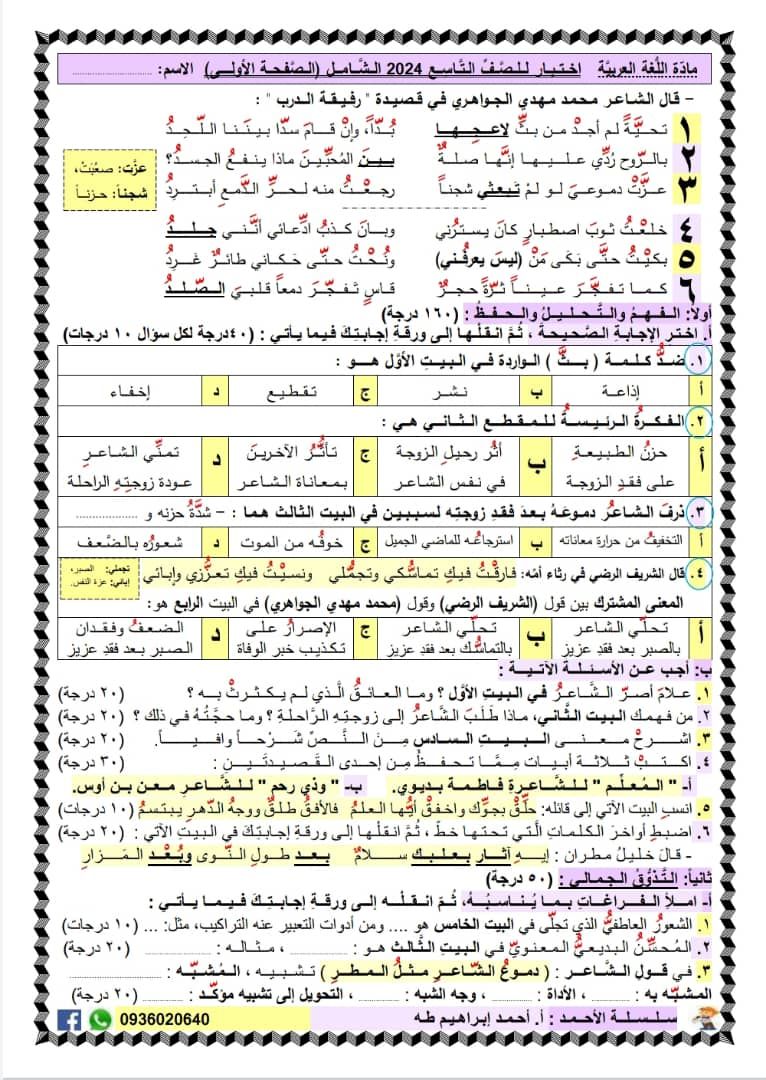 مادّة اللّغة العربيّة اختبار للصّفّ التّاسع 2024 الشّامل (الصّفحة الأولى) الاسم: ....................
– قال الشاعر محمد مهدي الجواهري في قصيدة " رفيقة الدرب " :
١ تحيَّةً لم أجدْ من بثِّ لاعجِها بُدّاً، وإنْ قامَ سدّا بينَنا اللّحِدُ
٢ بالرّوح رُدِّي عليها إنَّها صلةٌ بينَ المُحبِّينَ ماذا ينفعُ الجسدُ؟
٣ عزَّتْ دموعيَ لو لمْ تبعثي شجناً رجعْتُ منه لحرِّ الدَّمعِ أبتردُ
عزّت: صعُبَتْ،
شجناً: حزناً
٤ خلعْتُ ثوبَ اصطبارٍ كانَ يستُرُني وبانَ كذبُ ادِّعائي أنَّني جلدُ
٥ بكيْتُ حتَّى بكى مَنْ (ليسَ يعرفُني) ونُحْتُ حتَّى حَكاني طائرٌ غَرِدُ
٦ كما تفجَّرَ عيناً ثرَّةً حجرٌ قاسٍ تفجَّرَ دمعاً قلبيَ الصّلدُ
أولاً: الفهمُ والتَّحليلُ والحفظُ : (١٦٠ درجة)
أ. اختر الإجابةَ الصَّحيحةَ ، ثُمَّ انقلْها إلى ورقةِ إجابتِكَ فيما يأتي : (٤٠درجة لكل سؤال ١٠ درجات)
١. ضدُّ كلمة ( بثَّ ) الواردة في البيتِ الأوَّل هو :
أ إذاعة ب نشر ج تقطيع د إخفاء
٢. الفكرةُ الرئيسةُ للمقطع الثاني هي :
أ حزنُ الطبيعةِ على فقدِ الزوجة ب أثرُ رحيلِ الزوجة في نفس الشاعر ج تأثُّرُ الآخرينَ بمعاناة الشاعر د تمنِّي الشاعرِ عودة زوجتِهِ الراحلة
٣. ذرفَ الشاعرُ دموعَهُ بعدَ فقدِ زوجتِه لسببين في البيت الثالث هما : – شدَّةُ حزنه و ..................
أ التخفيفُ من حرارة معاناته ب استرجاعُه للماضي الجميل ج خوفُه من الموت د شعورُه بالضَّعف
٤. قال الشريف الرضي في رثاء أمّه: فارقْتُ فيكِ تماسُكي وتجمُّلي ونسيْتُ فيكِ تعزُّزي وإبائي
تجملي: الصبر،
إبائي: عزة النفس.
المعنى المشترك بين قول (الشريف الرضي) وقول (محمد مهدي الجواهري) في البيت الرابع هو:
أ تحلّي الشاعر بالصبر بعد فقدِ عزيز ب تحلّي الشاعر بالتماسُك بعد فقدِ عزيز ج الإصرارُ على تكذيب خبر الوفاة د الضعفُ وفقدان الصبر بعد فقدِ عزيز
ب: أجب عن الأسئلة الآتية :
١. علامَ أصرَّ الشَّاعرُ في البيتِ الأوَّل ؟ وما العائقُ الَّذي لم يكترثْ به ؟ (٢٠ درجة)
٢. من فهمِك البيت الثَّاني، ماذا طَلَبَ الشَّاعرُ إلى زوجتِهِ الرَّاحلةِ ؟ وما حجَّتُهُ في ذلك ؟ (٢٠ درجة)
٣. اشرحْ معنى البيتِ السادسِ مِنَ النَّصِّ شَرْحاً وافياً. (٢٠ درجة)
٤. اكتبْ ثلاثةَ أبياتٍ ممَّا تحفظُ مِن إحدى القصيدتَينِ : (٣٠ درجة)
أ- " المُعلّم " للشَّاعرةِ فاطمة بديوي. ب- " وذي رحم " للشَّاعرِ معن بن أوس.
٥. انسبِ البيت الآتي إلى قائله: حلِّقْ بجوِّك واخفقْ أيُّها العلمُ فالأفقُ طلْقٌ ووجهُ الدَّهرِ يبتسمُ (١٠ درجات)
٦. اضبطْ أواخرَ الكلماتِ الَّتي تحتها خطّ ، ثُمَّ انقلْها إلى ورقةِ إجابتِكَ في البيتِ الآتي : (٢٠ درجة)
– قال خليلُ مطران : إيهِ آثار بعلبك سلامٌ بعد طولِ النَّوى وبُعْد المَزارِ
ثانياً: التَّذوُّق الجمالي : (٥٠ درجة)
أ- املأ الفراغاتِ بما يُناسبُهُ، ثُمَّ انقلْه إلى ورقةِ إجابتِكَ فيما يأتي :
١. الشعورُ العاطفيُّ الذي تجلّى في البيت الخامس هو .... ومن أدوات التعبير عنه التراكيب، مثل: ... (١٠ درجات)
٢. المُحسِّنُ البديعيُّ المعنويّ في البيتِ الثَّالث هو : ......... ، مثاله : ......... (٢٠ درجة)
٣. في قولِ الشَّاعر : ( دموعُ الشَّاعرِ مثلُ المطرِ ) تشبيه ، المُشبَّه : ..................
المشبّه به : ......... ، الأداة : ......... ، وجه الشبه : ......... ، التحويل إلى تشبيه مؤكّد : ......... (٢٠ درجة)
سلسلة الأحمد : أ. أحمد إبراهيم طه 0936020640